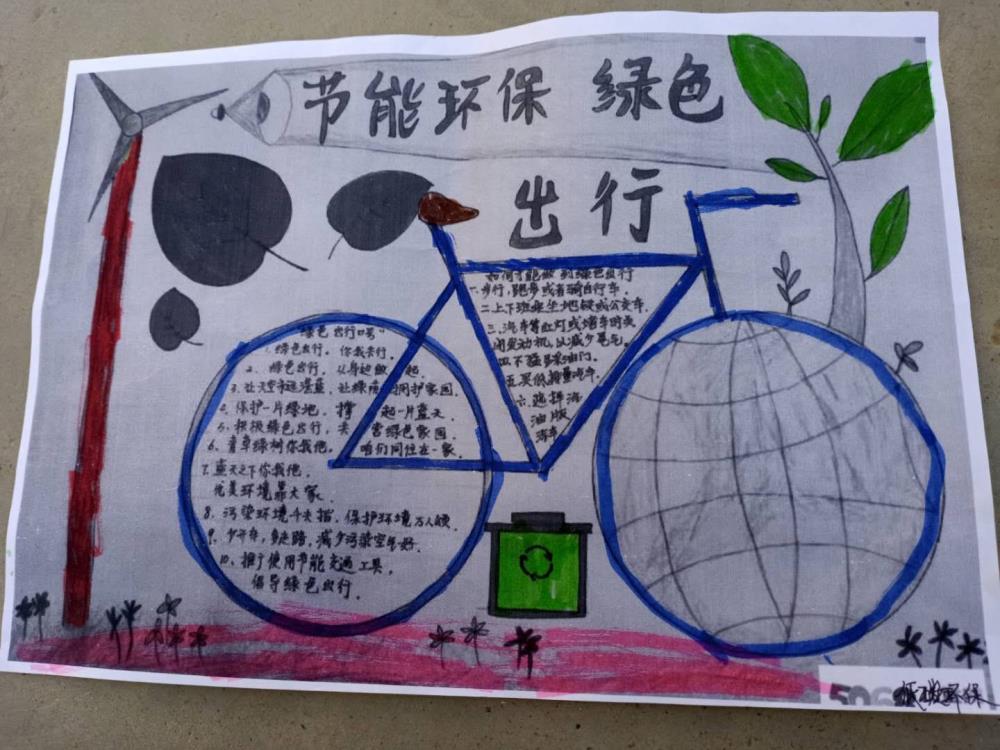 节能环保 绿色
出行
如何才能做到绿色出行
一.步行,跑步或者骑自行车.
二.上下班乘坐地铁或公交车.
三.汽车等红灯或堵车时关
闭发动机,以减少尾气.
四.不猛踩油门.
五.买低排量汽车.
六.选择混
油版
汽车
"绿色出行口号"
1.绿色出行,你我先行.
2.绿色出行,从身边做起.
3.让天空永远湛蓝,让绿荫拥护家园.
4.保护一片绿地,撑起一片蓝天
5.积极绿色出行,共营绿色家园.
6.青草绿树你我他,咱们同住在一家.
7.蓝天之下你我他.
优美环境靠大家.
8.污染环境千夫指,保护环境万人颂.
9.少开车,多走路,减少污染空气好.
10.推广使用节能交通工具,
倡导绿色出行.
506
低碳环保